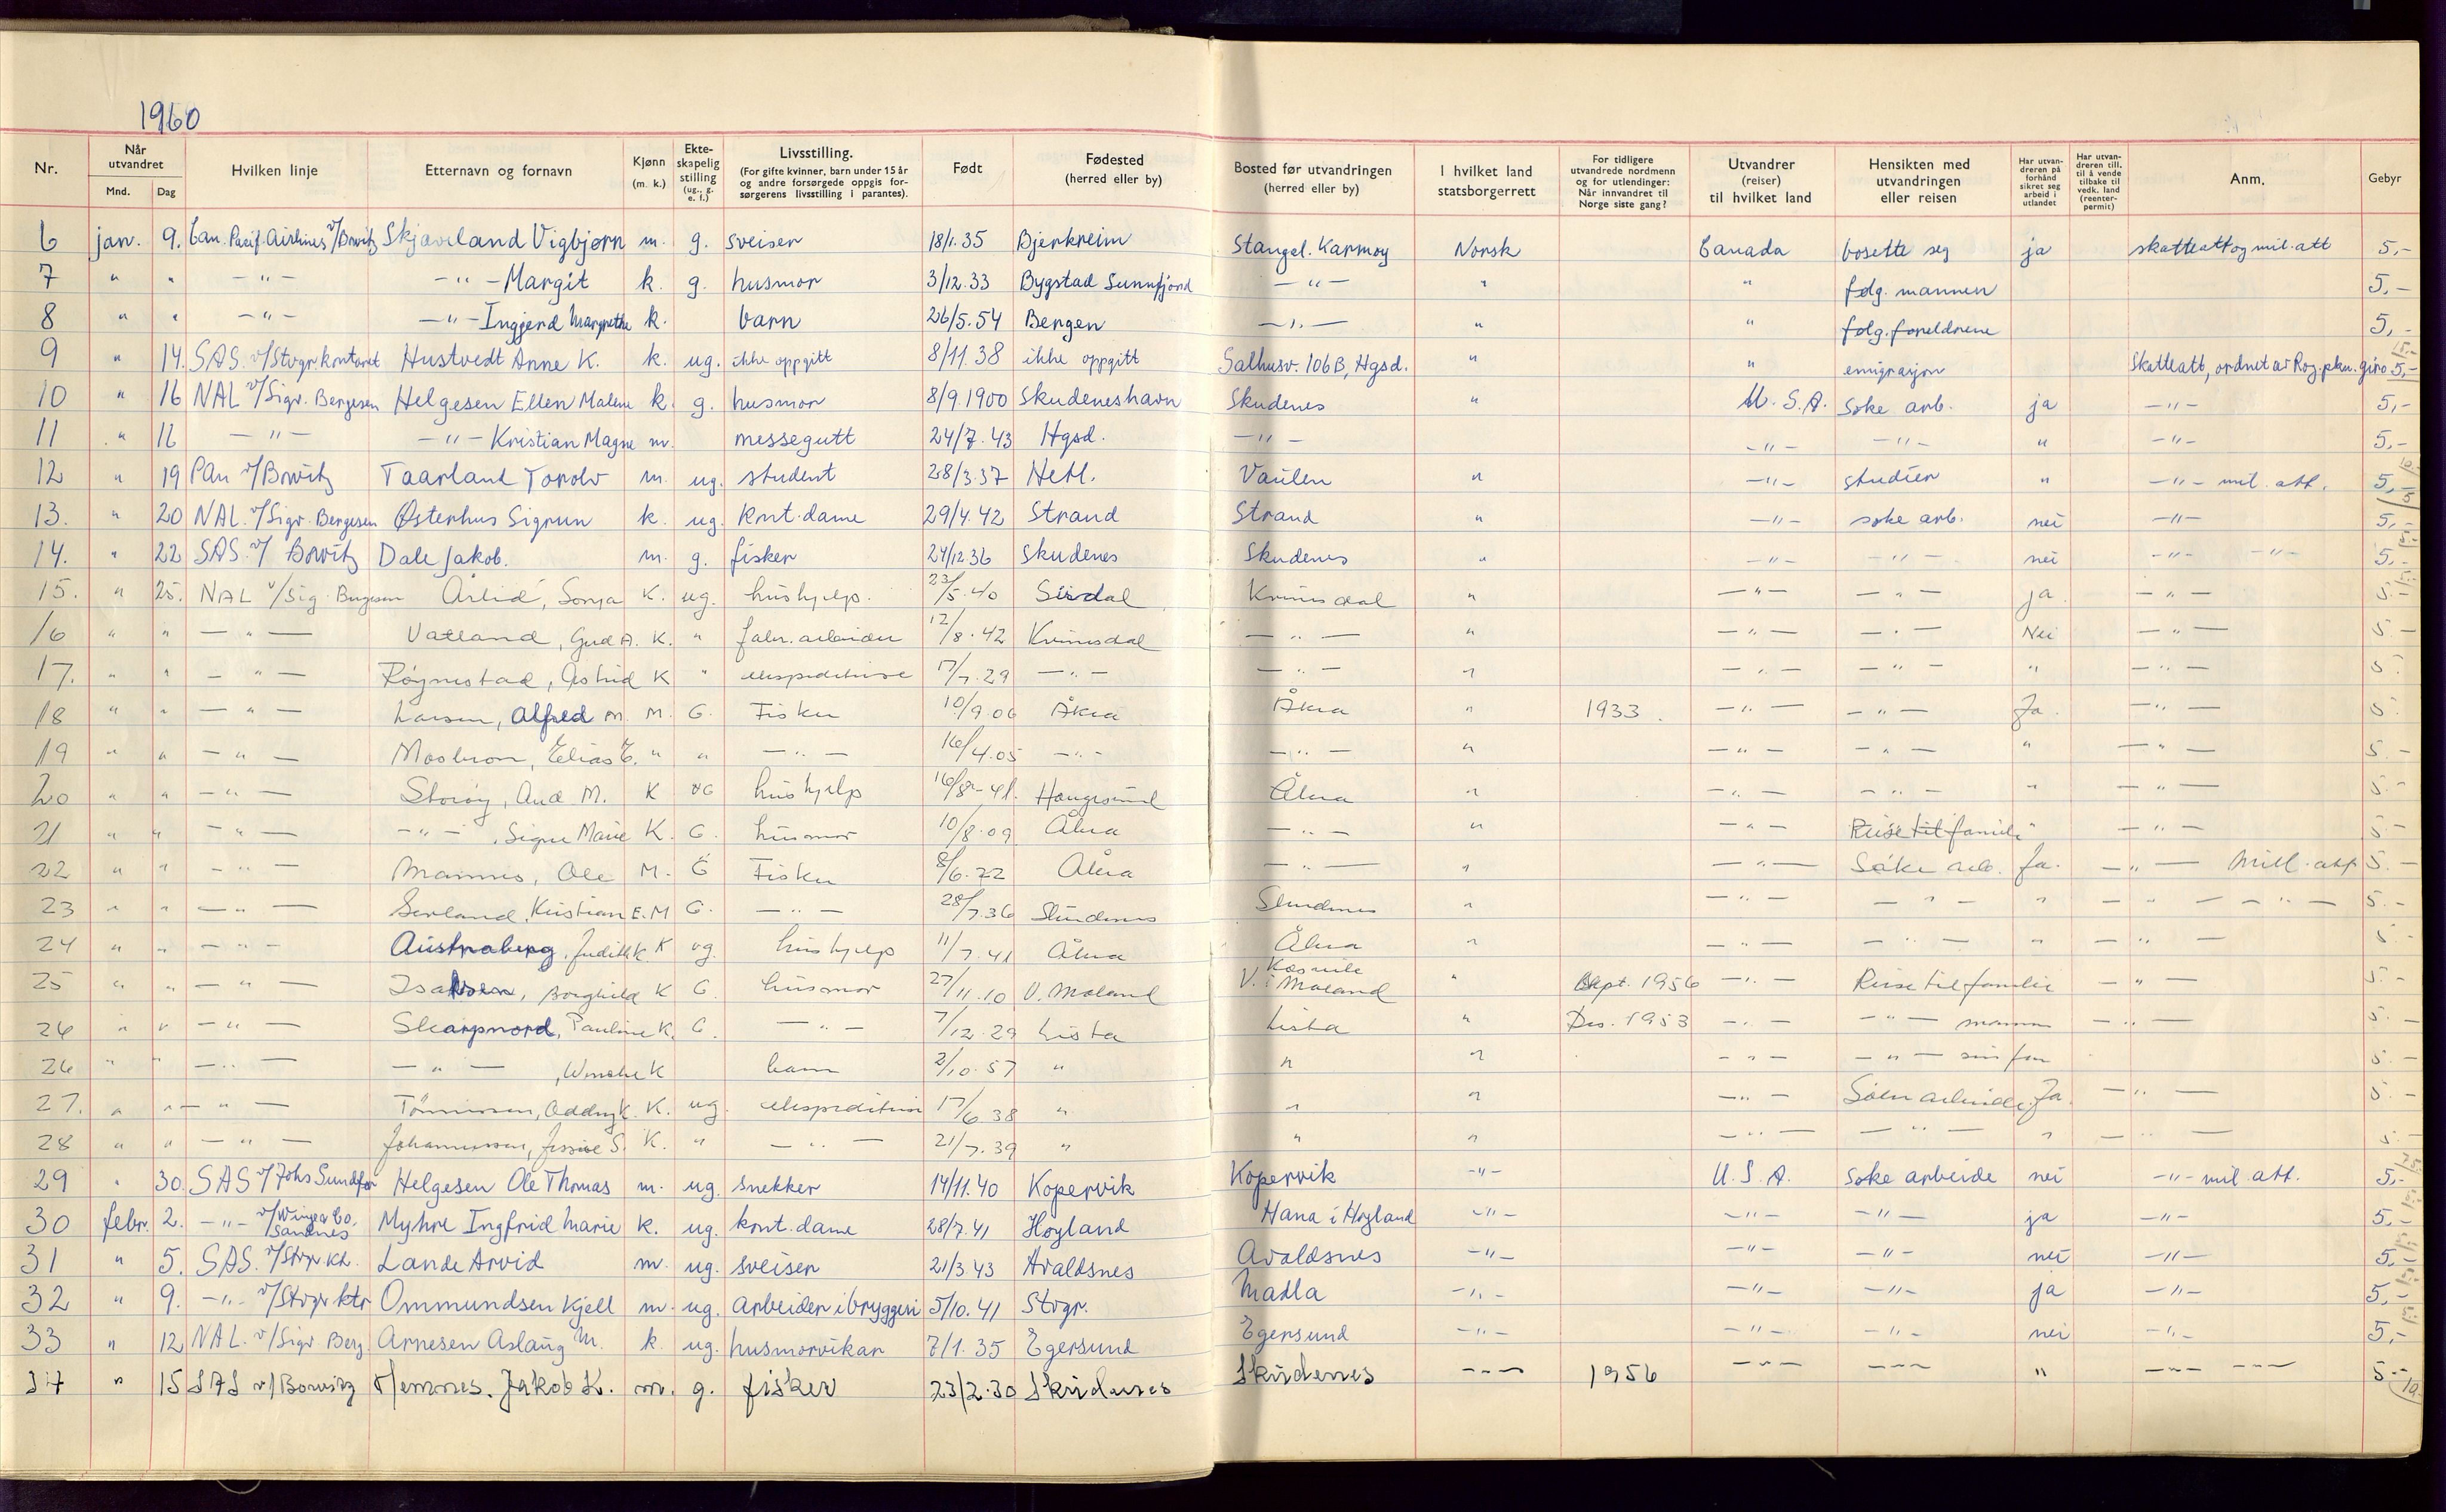 1960
Nr. Når utvandret Mnd. Dag Hvilken linje Etternavn og fornavn Kjønn (m. k.) Ekteskapelig stilling (ug., g. e. f.) Livsstilling. (For gifte kvinner, barn under 15 år og andre forsørgede oppgis forsørgerens livsstilling i parantes). Født Fødested (herred eller by) Bosted før utvandringen (herred eller by) I hvilket land statsborgerrett For tidligere utvandrede nordmenn og for utlendinger: Når innvandret til Norge siste gang? Utvandrer (reiser) til hvilket land Hensikten med utvandringen eller reisen Har utvandreren på forhånd sikret seg arbeid i utlandet Har utvandreren till. til å vende tilbake til vedk. land (reenterpermit) Anm. Gebyr
6 jan. 9. Can. Pacif. Airlines v/Bowitz Skjæveland Vigbjørn m. g. sveiser 18/1.35 Bjerkreim Stangel. Karmøy Norsk Canada bosette seg ja skatteatt og mil. att 5,-
7 " " -"- -"- Margit k. g. husmor 3/12.33 Bygstad Sunnfjord -"- " " følg. mannen 5,-
8 " " -"- -"- Ingjerd Margrethe k. barn 26/5.54 Bergen -"- " " følg. foreldrene 5,-
9 " 14. SAS. v/Stvgr. kontoret Hustvedt Anne K. k. ug. ikke oppgitt 8/11.38 ikke oppgitt Salhusv. 106B, Hgsd. " " emigrasjon Skatteatt, ordnet av Rog. giro 5,-
10 " 16 NAL v/Sigv. Bergesen Helgesen Ellen Malene k. g. husmor 8/9.1900 Skudeneshavn Skudenes " U.S.A. Søke arb. ja -"- 5,-
11 " 16 -"- -"- Kristian Magne m. messegutt 24/7.43 Hgsd. -"- -"- -"- " -"- 5,-
12 " 19 PAn v/Bowitz Taarland Torolv m. ug. student 28/3.37 Hetl. Vaulen " -"- studier " -"- mil. att. 5,-
13. " 20 NAL. v/Sigv. Bergesen Østerhus Sigrun k. ug. knt. dame 29/4.42 Strand Strand " -"- søke arb. nei -"- 5,-
14. " 22 SAS. v/ Bowitz Dale Jakob. m. g. fisker 24/12.36 Skudenes Skudenes " -"- -"- nei -"- -"- 5,-
15. " 25. NAL v/Sig. Bergesen Årlid, Sonja K. ug. hushjelp. 23/5.40 Sirdal Kvinesdal " -"- -"- ja -"- 5.-
16 " " -"- Vatland, Gud A. K. " fabr. arbeider 12/8.42 Kvinesdal -"- " -"- -"- Nei -"- 5.-
17. " " -"- Røynestad, Astrid K " ekspeditrise 17/7.29 -"- -"- " -"- -"- " -"- 5.-
18 " " -"- Larsen, Alfred M. M. G. Fisker 10/9.06 Åkra Åkra " 1933. -"- -"- Ja. -"- 5.-
19 " " -"- Mosbron, Elias E. " " -"- 16/4.05 -"- -"- " -"- -"- " -"- 5.-
20 " " -"- Storøy, Aud M. K UG hushjelp 16/8-41. Haugesund Åkra " -"- -"- " -"- 5.-
21 " " -"- -"-, Signe Marie K. G. husmor 10/8.09 Åkra -"- " -"- Reise til familie " -"- 5.-
22 " " -"- Mannes, Ole M. G Fisker 8/6.22 Åkra -"- " -"- Søke arb. Ja. -"- Mill. att 5.-
23 " " -"- Kristian E. M G. -"- 28/7.36 Skudenes Skudenes " -"- -"- " -"- -"- 5.-
24 " " -"- Austraberg, Judith K. K ug. hushjelp 11/7.41 Åkra Åkra " -"- -"- " -"- 5.-
25 " " -"- Isaksen, Borghild K G. husmor 27/11.10 V. Moland V. i Moland " Sept. 1956 -"- Reise til familie -"- 5.-
26 " " -"- Skarpnord, Pauline K. G. -"- 7/12.29 Lista Lista " Des. 1953 -"- -"- mannen -"- 5.-
26 " " -"- -"-, Wenche K barn 2/10.57 " " " -"- -"- sin far 5.-
27. " " -"- Tønnessen, Oddny K. K. ug. ekspeditrise 17/6.38 " " " -"- Søker arbeide Ja. -"- 5.-
28 " " -"- Johannessen, Jessie S. K. " -"- 21/7.39 " " " -"- -"- " -"- 5.-
29 " 30. SAS v/Johs Sundfør Helgesen Ole Thomas m. ug. snekker 14/11.40 Kopervik Kopervik -"- U.S.A. Søke arbeide nei -"- mil. att. 5,-
30 febr. 2. -"- v/Winge & Co. Sandnes Myhre Ingfrid Marie k. ug. kont. dame 28/7.41 Høyland Hana i Høyland -"- -"- -"- ja -"- 5,-
31 " 5. SAS. v/Stvgr kt. Lande Arvid m. ug. sveiser 21/3.43 Avaldsnes Avaldsnes -"- -"- -"- nei -"- 5,-
32 " 9. -"- v/Stvgr ktr Ommundsen Kjell m. ug. arbeider i bryggeri 5/10.41 Stvgr. Madla -"- -"- -"- ja -"- 5,-
33 " 12 NAL. v/Sigv. Berg. Arnesen Aslaug M. k. ug. husmorvikar 7/1.35 Egersund Egersund -"- -"- -"- nei -"- 5,-
34 " 15 SAS v/Bowitz Hemnes. Jakob K. m. g. fisker 23/2.30 Skudenes Skudenes -"- 1956 -"- -"- " -"- -"- 5.-